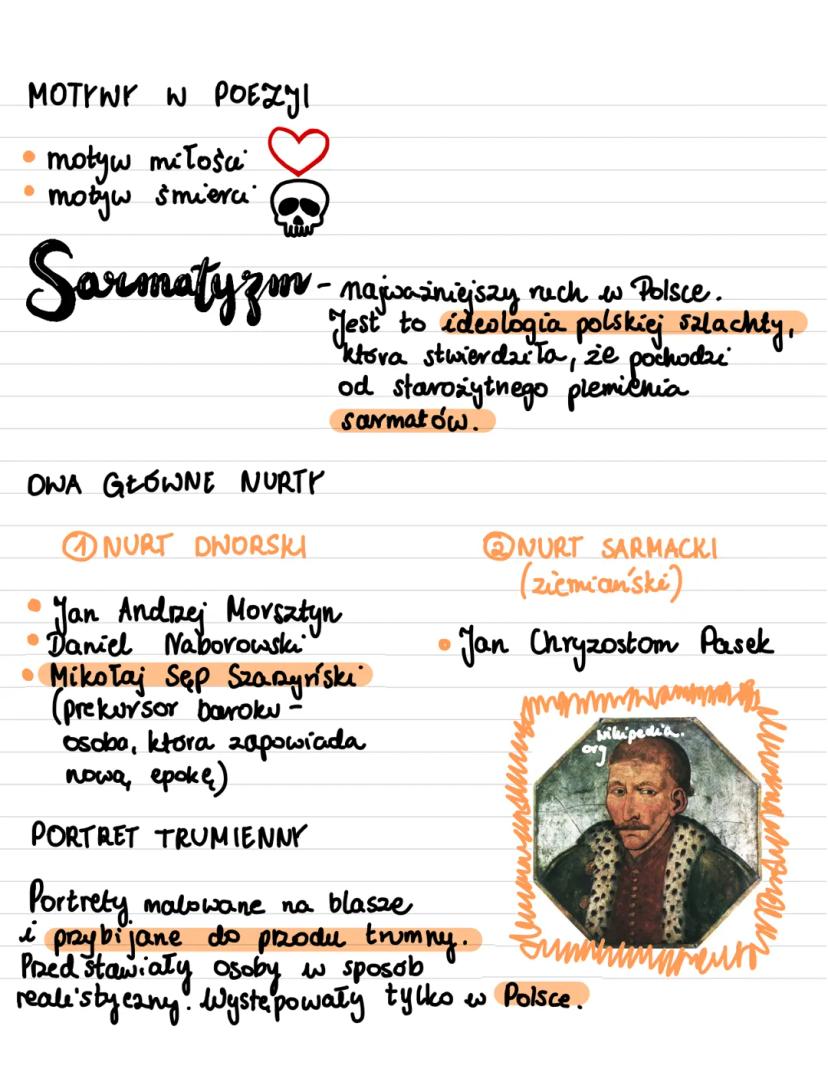 MOTYWY W POEZJI
• motyw miłości
• motyw śmierci
Sarmatyzm - najważniejszy ruch w Polsce.
Jest to ideologia polskiej szlachty,
która stwierdziła, że pochodzi
od starożytnego plemienia
sarmatów.
DWA GŁÓWNE NURTY
① NURT DWORSKI
• Jan Andrzej Morsztyn
• Daniel Naborowski
• Mikołaj Sęp Szarzyński
(prekursor baroku -
osoba, która zapowiada
nową epokę)
② NURT SARMACKI
(ziemiański)
• Jan Chryzostom Pasek
wikipedia.
org
PORTRET TRUMIENNY
Portrety malowane na blasze
i przybijane do przodu trumny.
Przedstawiały osoby w sposób
realistyczny. Występowały tylko w Polsce.